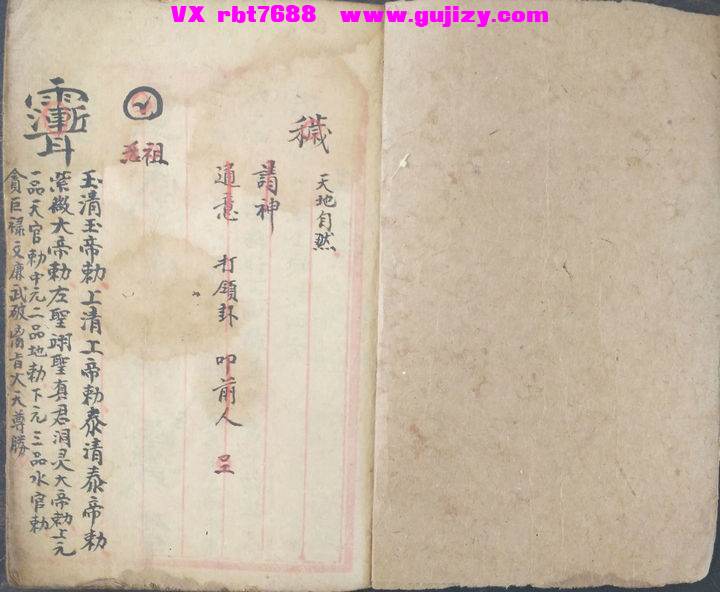 VX rbt7688 www.gujizy.com
穢
天地自然
請神
通意 打領卦 叩前人
祖
玉清玉帝勅上清上帝勅泰清泰帝勅
紫微大帝勅左聖翊聖真君洞灵大帝勅上元
一品天官勅中元二品地勅下元三品水官勅
貪巨祿文廉武破 大天尊勝